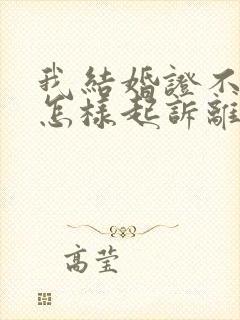 我結婚證不
怎樣起訴離
高莹